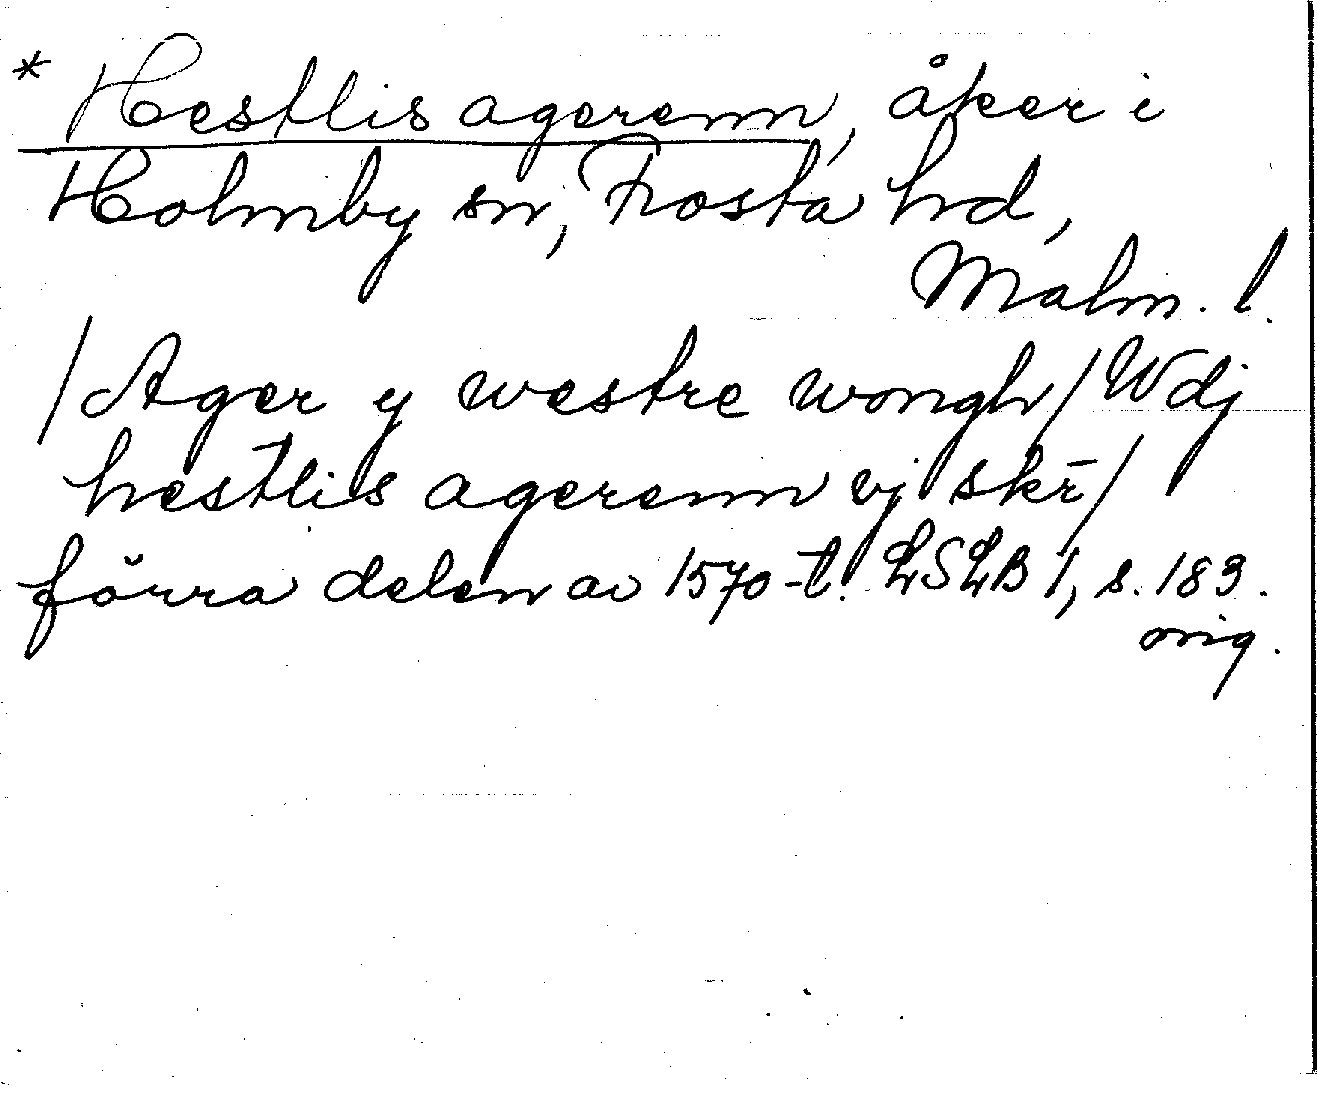 * Hestlis agerenn, åker i
Holmby sn, Frosta hd,
Malm. l.
/Ager y westre wongh/ Wdj
hestlis agerenn vj skr̄/
förra delen av 1570-t. LSLB 1, s. 183.
orig.